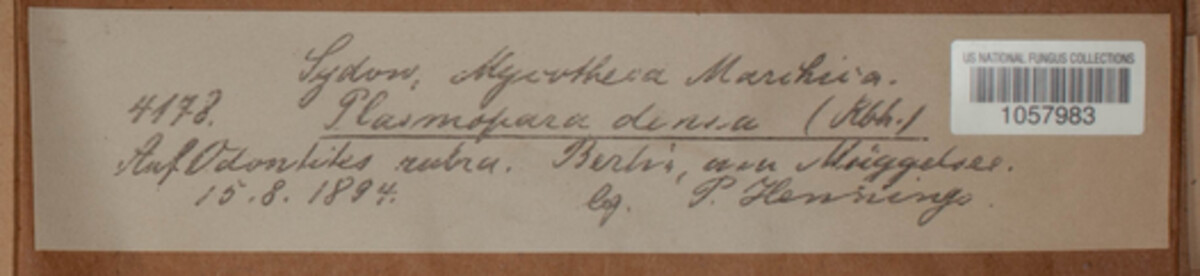 Sydow, Mycotheca Marchica.
4178. Plasmopara densa (Rbh.)
Auf Odontites rubra. Berlin, am Müggelsee.
15.8.1894. lg. P. Hennings.
US NATIONAL FUNGUS COLLECTIONS
1057983